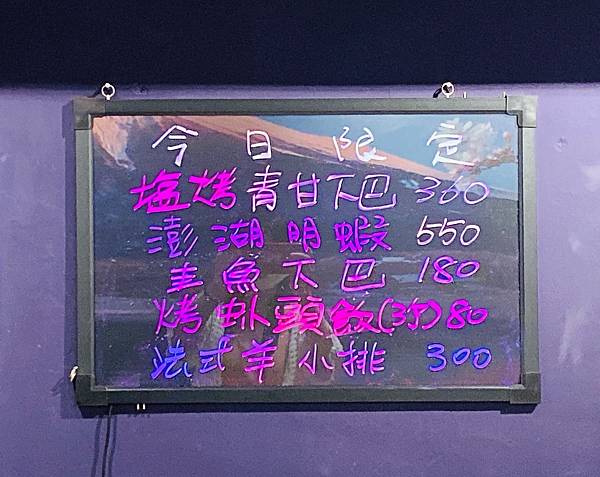 今日限定
塩烤青甘下巴 360
澎湖明蝦 550
圭魚下巴 180
烤虾頭飯(3討)80
法式羊小排 300